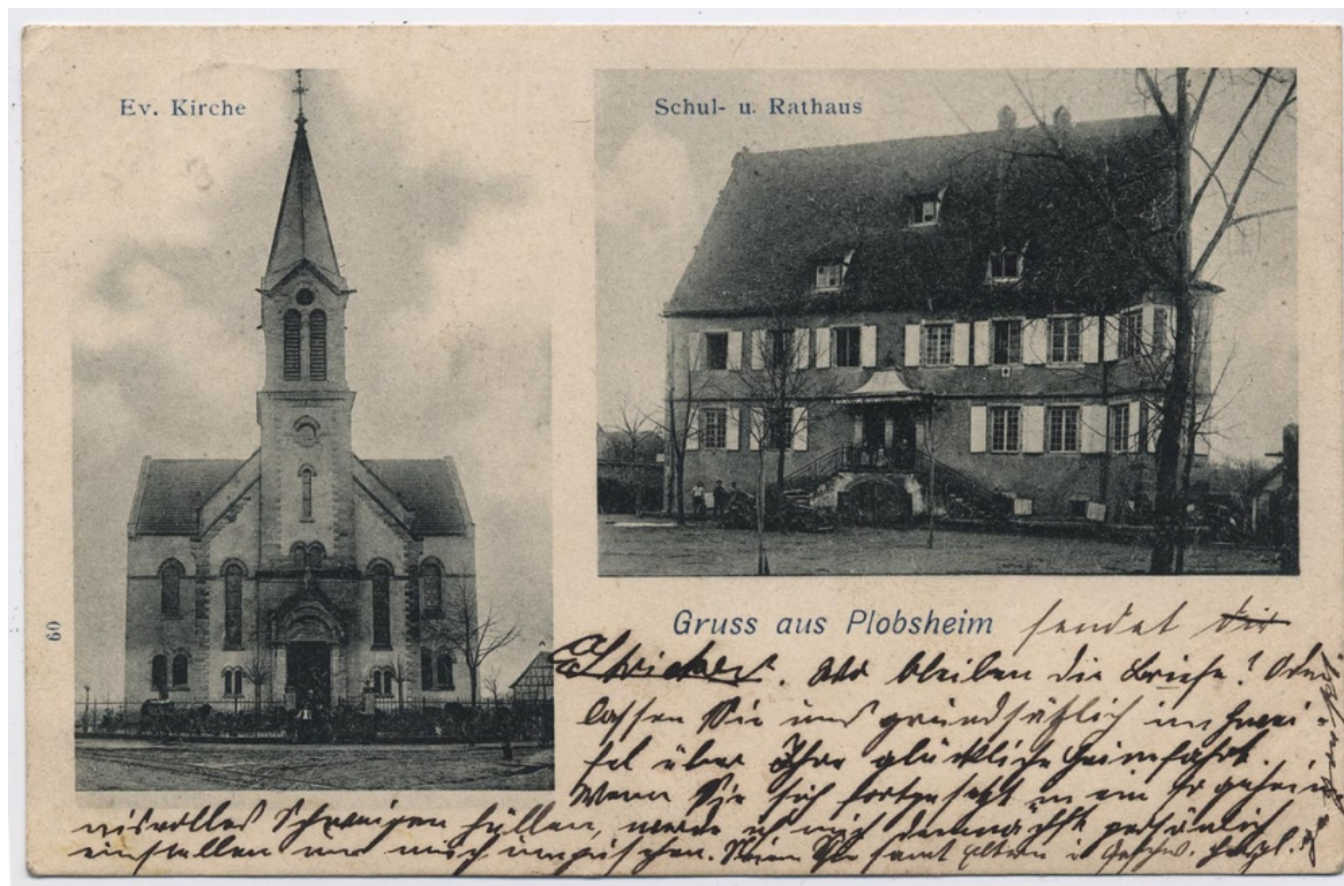 Ev. Kirche
Schul- u. Rathaus
60
Gruss aus Plobsheim sendet
Stricker. Wo bleiben die Briefe! Oder
lassen Sie uns grundsätzlich im Zwei-
fel über Ihre glückliche Heimfahrt.
Wenn Sie sich fortgesetzt in ein so geheim-
nisvolles Schweigen hüllen, werde ich mich demnächst persönlich
einstellen um mich umzusehen. Seien Sie samt Eltern u. Geschw. herzl.